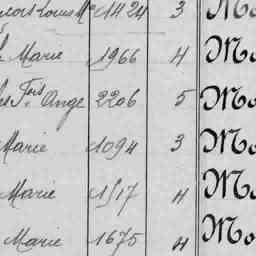 Louis Me 1424 3 Mo
Marie 1966 4 Mo
Frs Ange 2206 5 Mo
Marie 1094 3 Mo
Marie 1517 4 Mo
Marie 1675 4 Mo